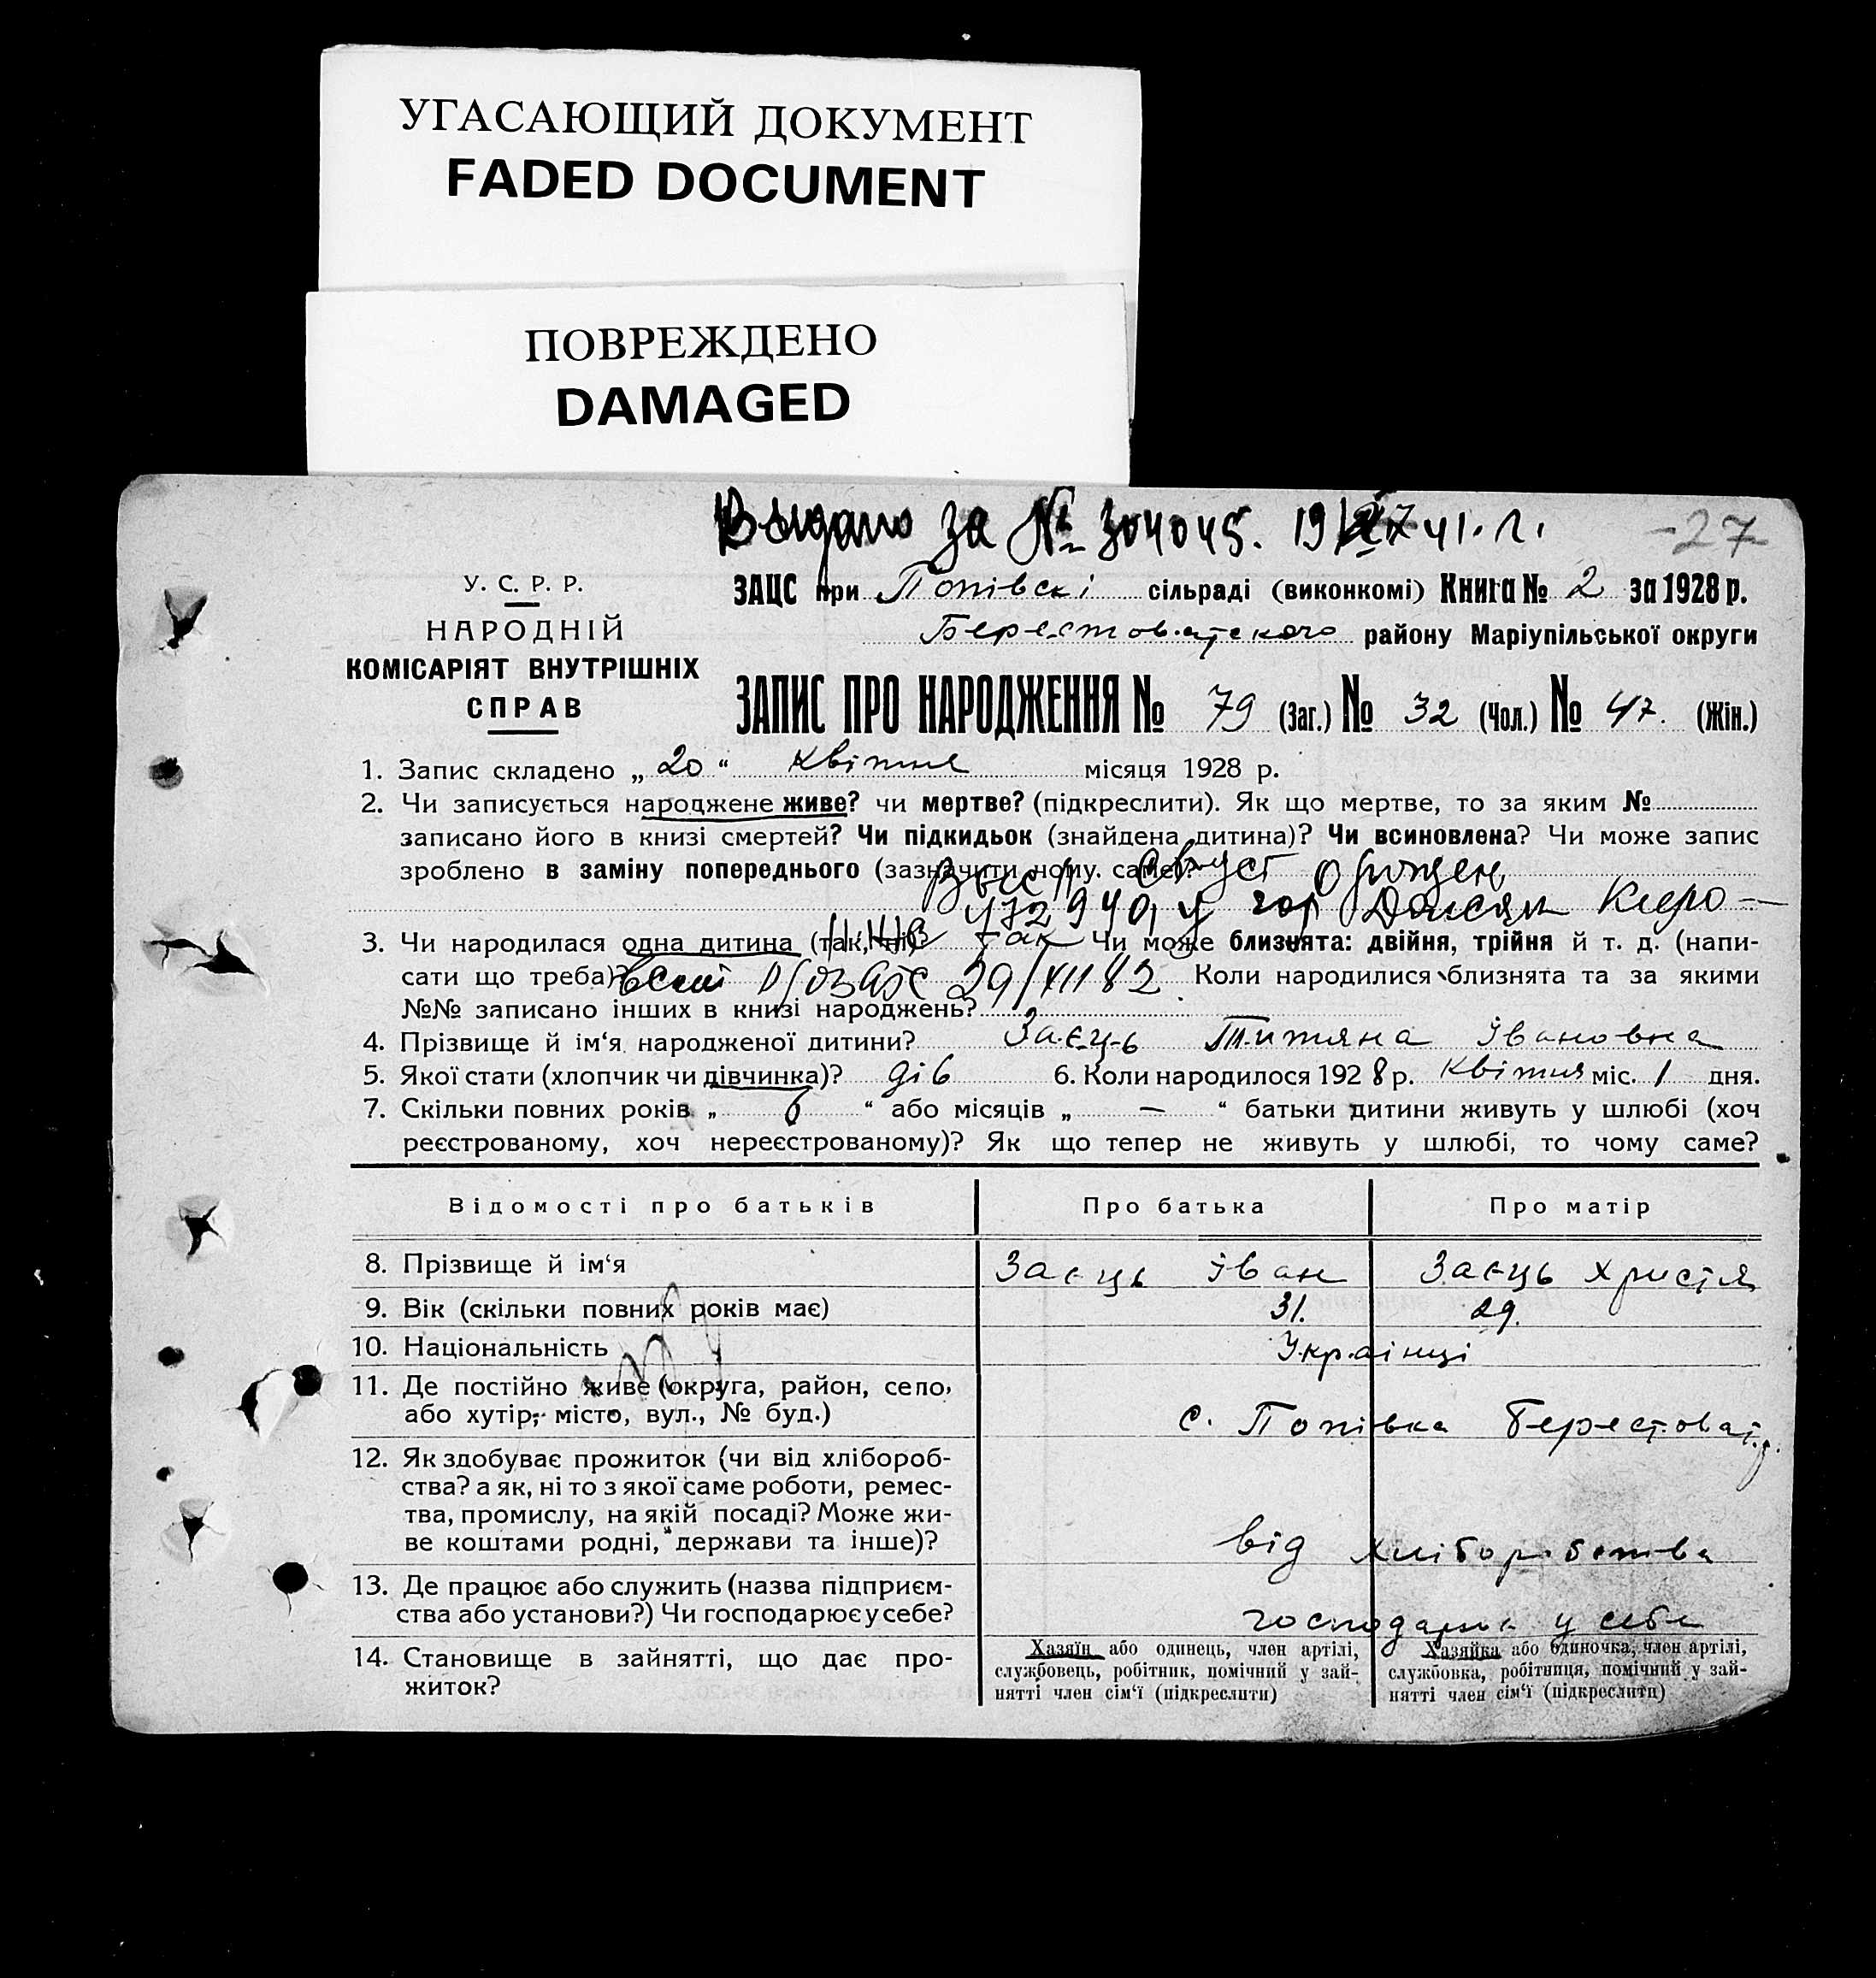 УГАСАЮЩИЙ ДОКУМЕНТ
FADED DOCUMENT
ПОВРЕЖДЕНО
DAMAGED
Выдано за № 304045. 41. г.
-27
У. С. Р. Р.
НАРОДНІЙ
КОМІСАРІЯТ ВНУТРІШНІХ
СПРАВ
ЗАЦС при Попівскі сільраді (виконкомі) Книга № 2 за 1928 р.
Берестоватского району Маріупільської округи
ЗАПИС ПРО НАРОДЖЕННЯ № 79 (Заг.) № 32 (Чол.) № 47. (Жін.)
1. Запис складено „ 20 “ квітня місяця 1928 р.
2. Чи записується народжене живе? чи мертве? (підкреслити). Як що мертве, то за яким №
записано його в книзі смертей? Чи підкидьок (знайдена дитина)? Чи всиновлена? Чи може запис
зроблено в заміну попереднього (зазначити чому саме)?
3. Чи народилася одна дитина (так, ні)? так Чи може близнята: двійня, трійня й т. д. (напи-
сати що треба)? 29/XII 82 Коли народилися близнята та за якими
№№ записано інших в книзі народжень?
4. Прізвище й ім‘я народженої дитини? Заєць Титяна Івановна
5. Якої стати (хлопчик чи дівчинка)? дів 6. Коли народилося 1928 р. Квітня міс. 1 дня.
7. Скільки повних років „ 6 “ або місяців „ — “ батьки дитини живуть у шлюбі (хоч
реєстрованому, хоч нереєстрованому)? Як що тепер не живуть у шлюбі, то чому саме?
Відомості про батьків Про батька Про матір
8. Прізвище й ім‘я Заєць Іван Заєць Христя
9. Вік (скільки повних років має) 31. 29.
10. Національність Українці
11. Де постійно живе (округа, район, село,
або хутір, місто, вул., № буд.) с. Попівка Берестоват. р.
12. Як здобуває прожиток (чи від хлібороб-
ства? а як, ні то з якої саме роботи, ремес-
тва, промислу, на якій посаді? Може жи-
ве коштами родні, держави та інше)? від хліборобства
13. Де працює або служить (назва підприєм-
ства або установи?) Чи господарює у себе? господарює у себе
14. Становище в зайнятті, що дає про-
житок?
Хазяїн або одинець, член артілі,
службовець, робітник, помічний у зай-
нятті член сім‘ї (підкреслити)
Хазяйка або одиночка, член артілі,
службовка, робітниця, помічний у зай-
нятті член сім‘ї (підкреслити)